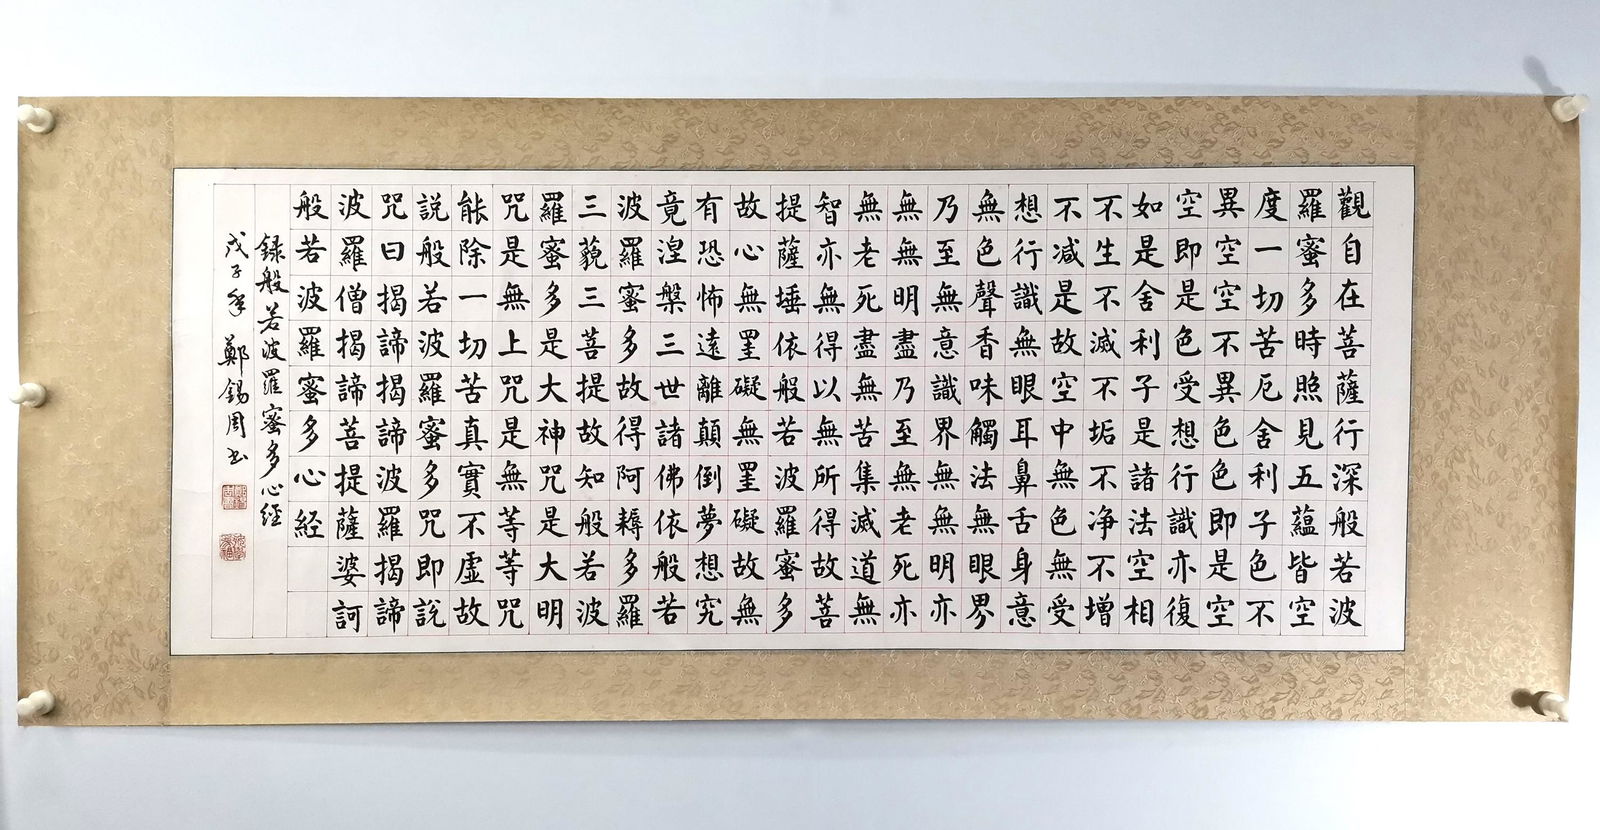 觀自在菩薩行深般若波
羅蜜多時照見五蘊皆空
度一切苦厄舍利子色不
異空空不異色色即是空
空即是色受想行識亦復
如是舍利子是諸法空相
不生不滅不垢不净不增
不减是故空中無色無受
想行識無眼耳鼻舌身意
無色聲香味觸法無眼界
乃至無意識界無無明亦
無無明盡乃至無老死亦
無老死盡無苦集滅道無
智亦無得以無所得故菩
提薩埵依般若波羅蜜多
故心無罣礙無罣礙故無
有恐怖遠離顛倒夢想究
竟涅槃三世諸佛依般若
波羅蜜多故得阿耨多羅
三藐三菩提故知般若波
羅蜜多是大神咒是大明
咒是無上咒是無等等咒
能除一切苦真實不虛故
說般若波羅蜜多咒即說
咒曰揭諦揭諦波羅揭諦
波羅僧揭諦菩提薩婆訶
般若波羅蜜多心経
録般若波羅蜜多心經
戊子年 鄭錫周书